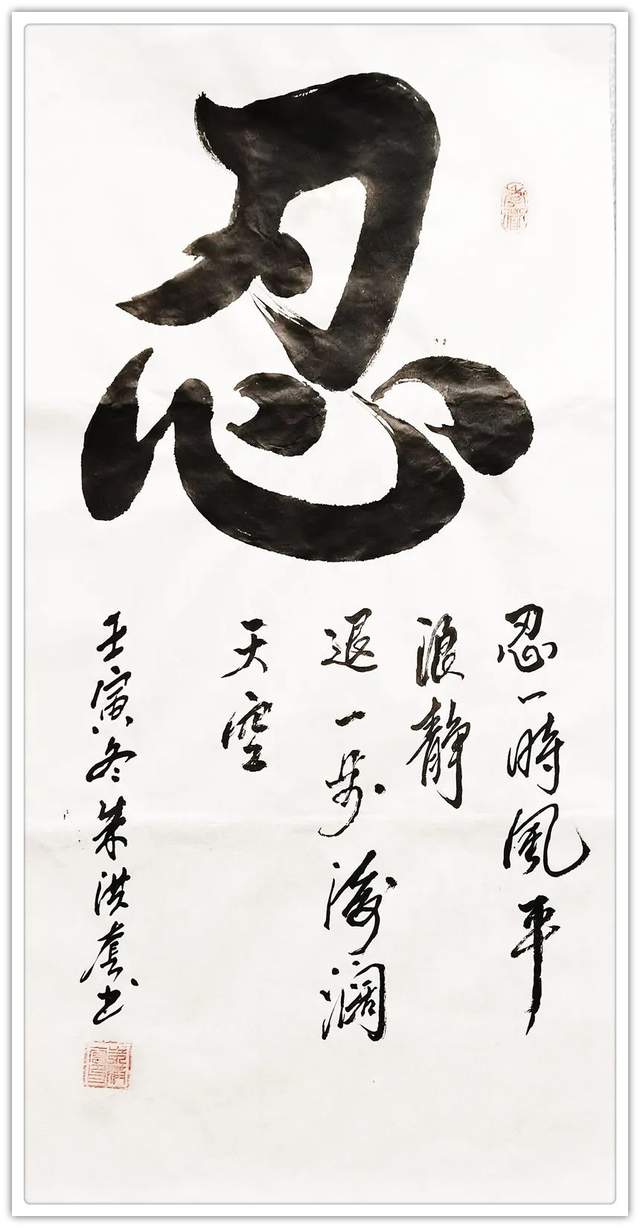 忍
忍一時風平
浪静
退一步海阔
天空
壬寅冬朱洪彪书